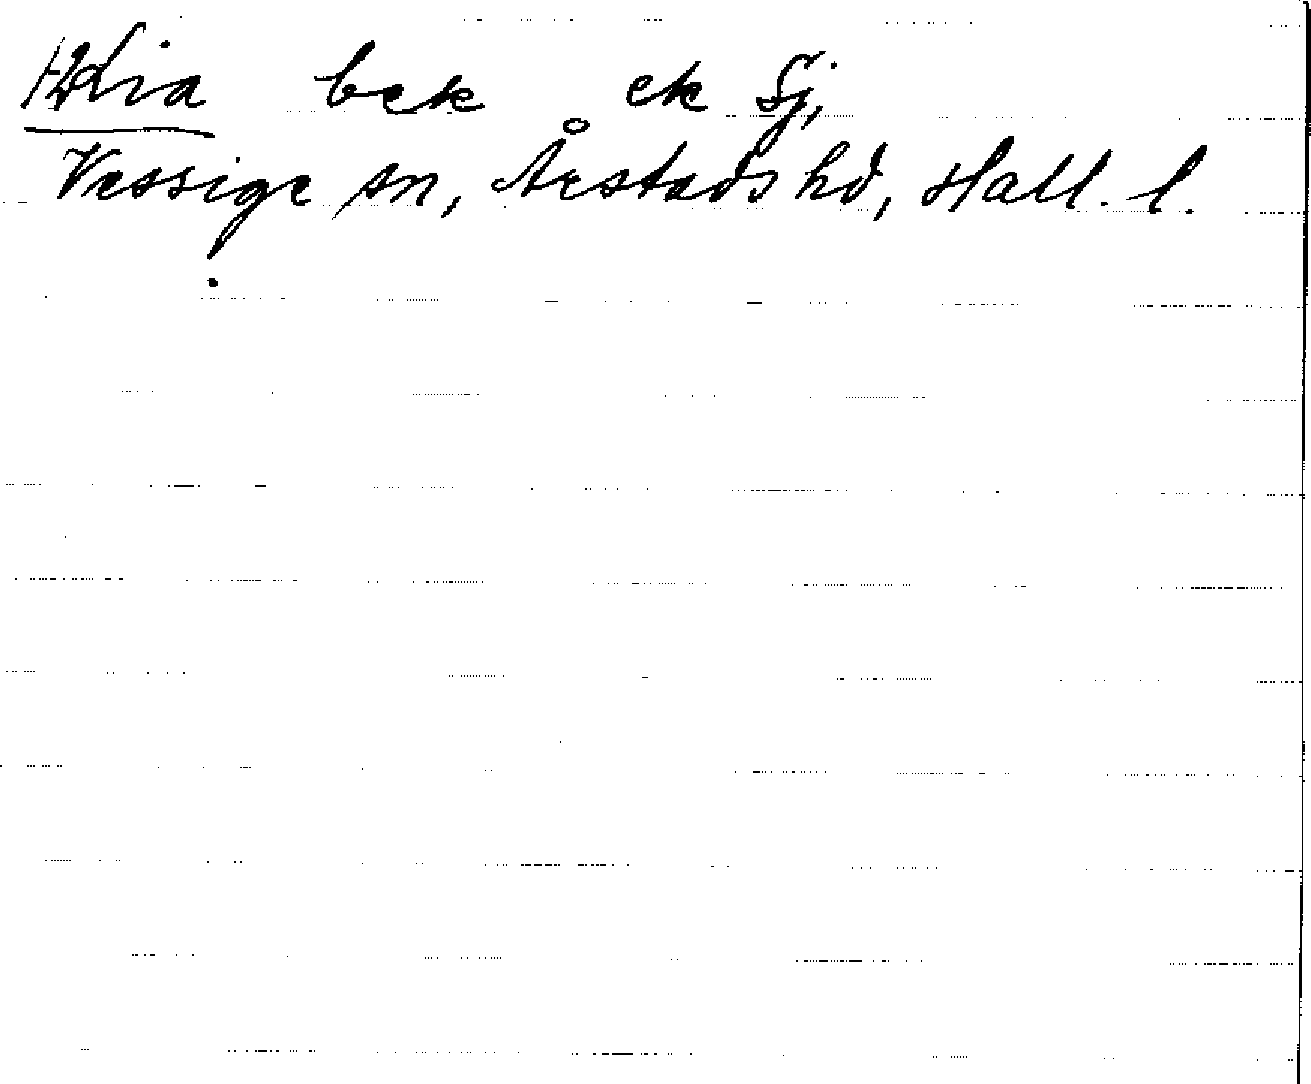 bck ek Sj,
Vessige sn, Årstads hd, Hall. l.